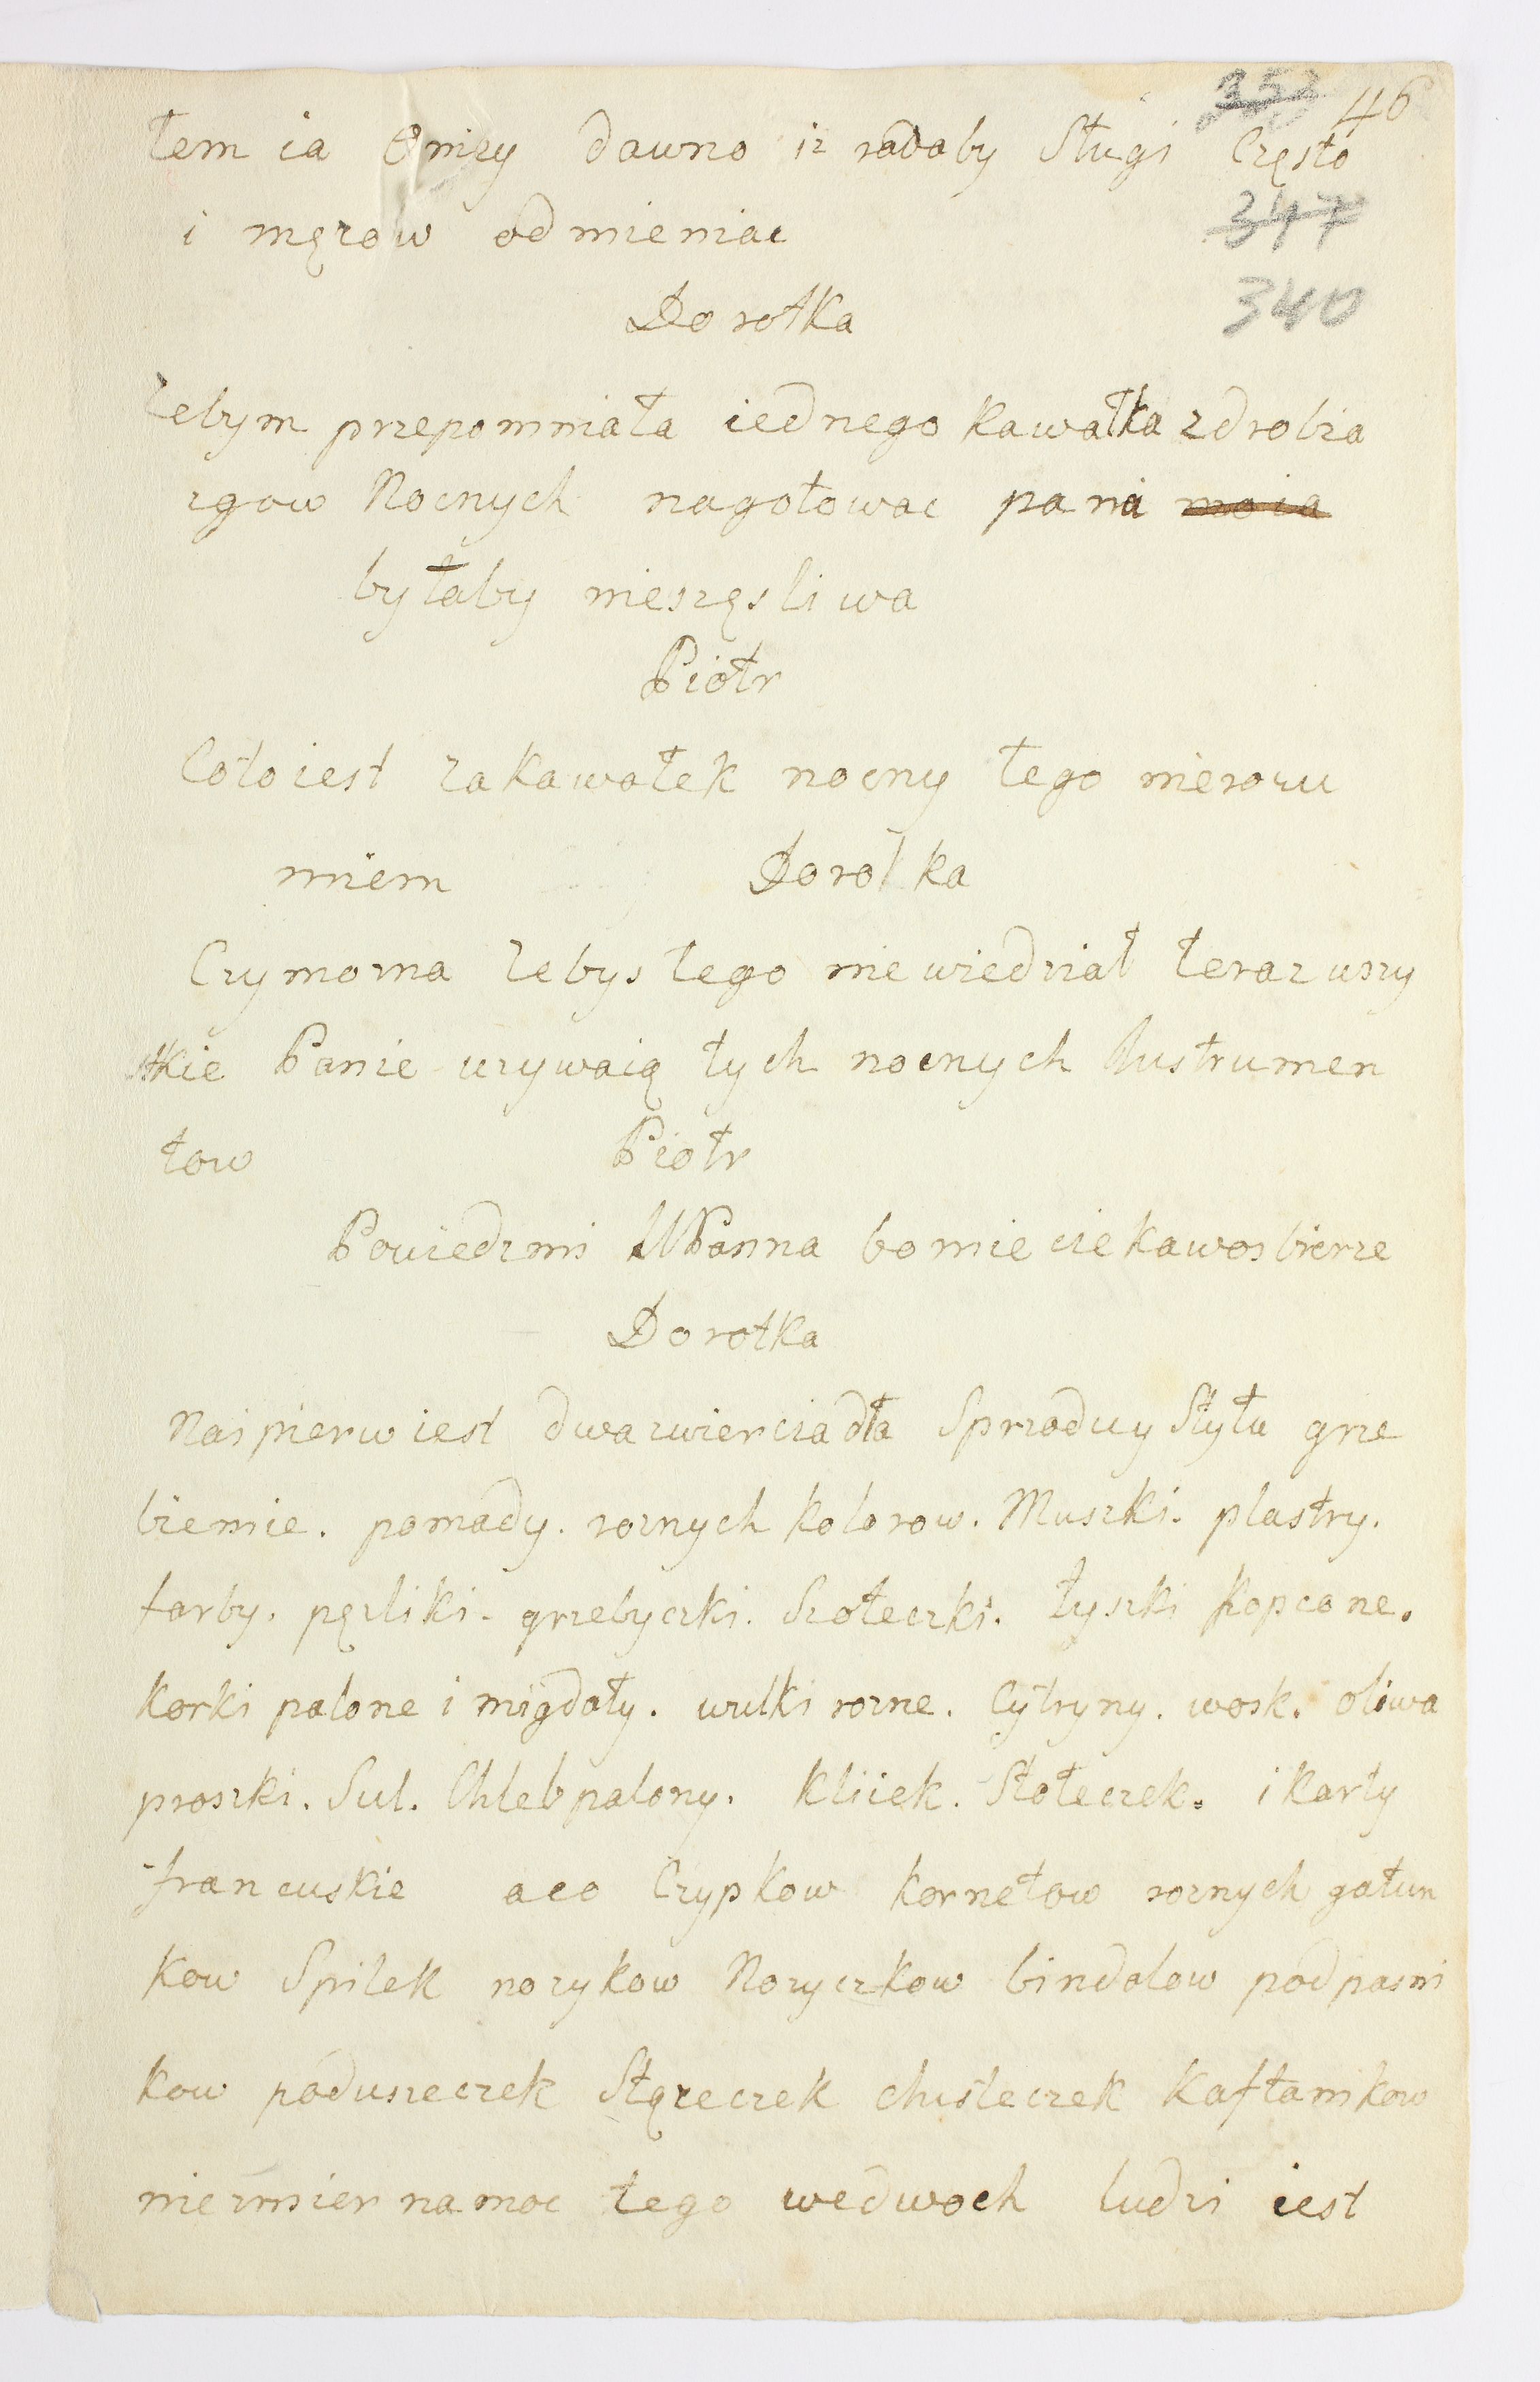 352 46
tem ia Oniey dawno iz radaby Sługi Często
i męzow odmieniac
347
Dorotka
340
Zebym przepomniała iednego kawałka zdrobia
zgow Nocnych nagotowac pani moia
byłaby nieszęsliwa
Piotr
Cotoiest zakawałek nocny tego nierozu
miem Dorotka
Czymozna zebys tego niewiedział teraz wszy
stkie Panie uzywaią tych nocnych Instrumen
tow Piotr
Powiedzmi WPanna bomie ciekawos bierze
Dorotka
Naipierw iest dwazwierciadła Sprzoduy Stylu grze
bienie. pomady. roznych kolorow. Muszki. plastry.
farby. pęzliki. grzebyczki. Szoteczki. łyszki kopcone.
korki palone i migdały. wulki rozne. Cytryny. wosk. oliwa
proszki. Sul. Chleb palony. Kliiek. Stołeczek. i karty
francuskie aco Czypkow kornetow roznych gatun
kow Spilek nozykow Nozyczkow bindalow podpasni
kow poduszeczek Stązeczek chusteczek kaftanikow
niezmier namoc tego wedwoch ludzi iest